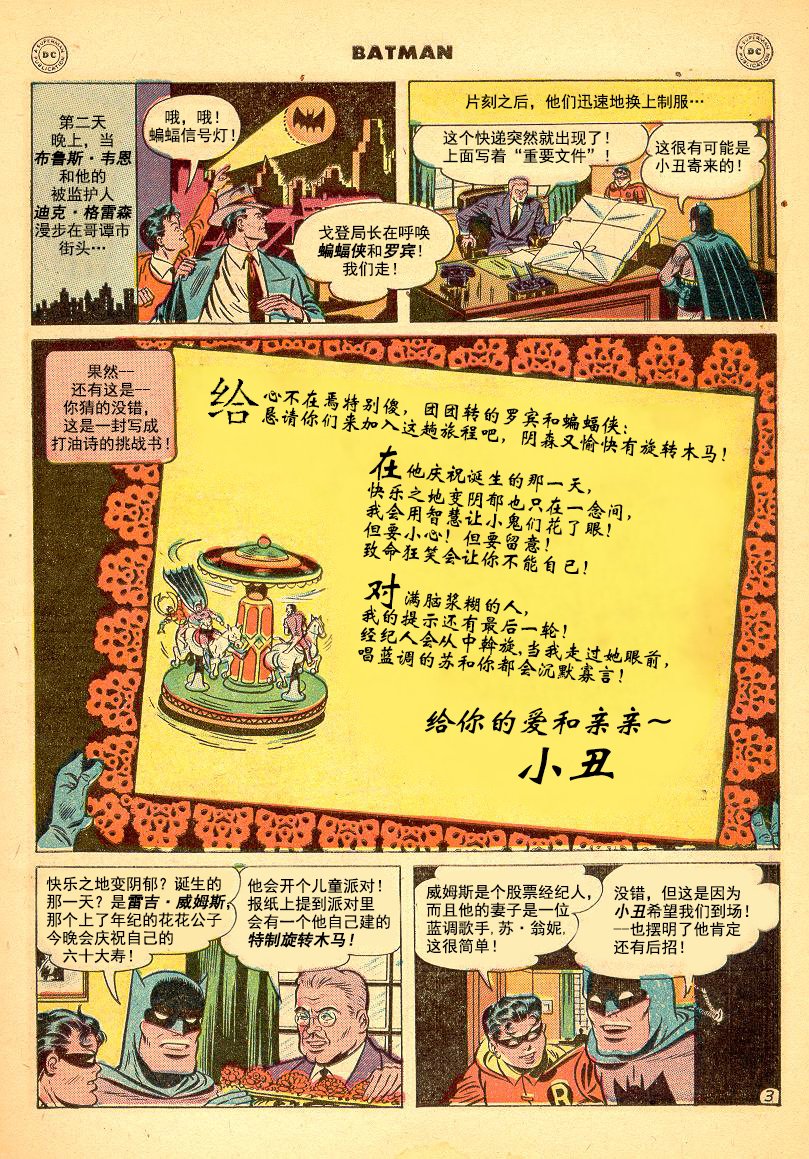 A SUPERMAN DC PUBLICATION
BATMAN
A SUPERMAN DC PUBLICATION
第二天
晚上，当
布鲁斯·韦恩
和他的
被监护人
迪克·格雷森
漫步在哥谭市
街头…
哦，哦！
蝙蝠信号灯！
戈登局长在呼唤
蝙蝠侠和罗宾！
我们走！
片刻之后，他们迅速地换上制服…
这个快递突然就出现了！
上面写着“重要文件”！
这很有可能是
小丑寄来的！
果然--
还有这是--
你猜的没错，
这是一封写成
打油诗的挑战书！
给心不在焉特别傻，团团转的罗宾和蝙蝠侠：
恳请你们来加入这趟旅程吧，阴森又愉快有旋转木马！
在他庆祝诞生的那一天，
快乐之地变阴郁也只在一念间，
我会用智慧让小鬼们花了眼！
但要小心！但要留意！
致命狂笑会让你不能自已！
对满脑浆糊的人，
我的提示还有最后一轮！
经纪人会从中斡旋，当我走过她眼前，
唱蓝调的苏和你都会沉默寡言！
给你的爱和亲亲～
小丑
快乐之地变阴郁？诞生的
那一天？是雷吉·威姆斯，
那个上了年纪的花花公子
今晚会庆祝自己的
六十大寿！
他会开个儿童派对！
报纸上提到派对里
会有一个他自己建的
特制旋转木马！
威姆斯是个股票经纪人，
而且他的妻子是一位
蓝调歌手，苏·翁妮，
这很简单！
没错，但这是因为
小丑希望我们到场！
--也摆明了他肯定
还有后招！
3